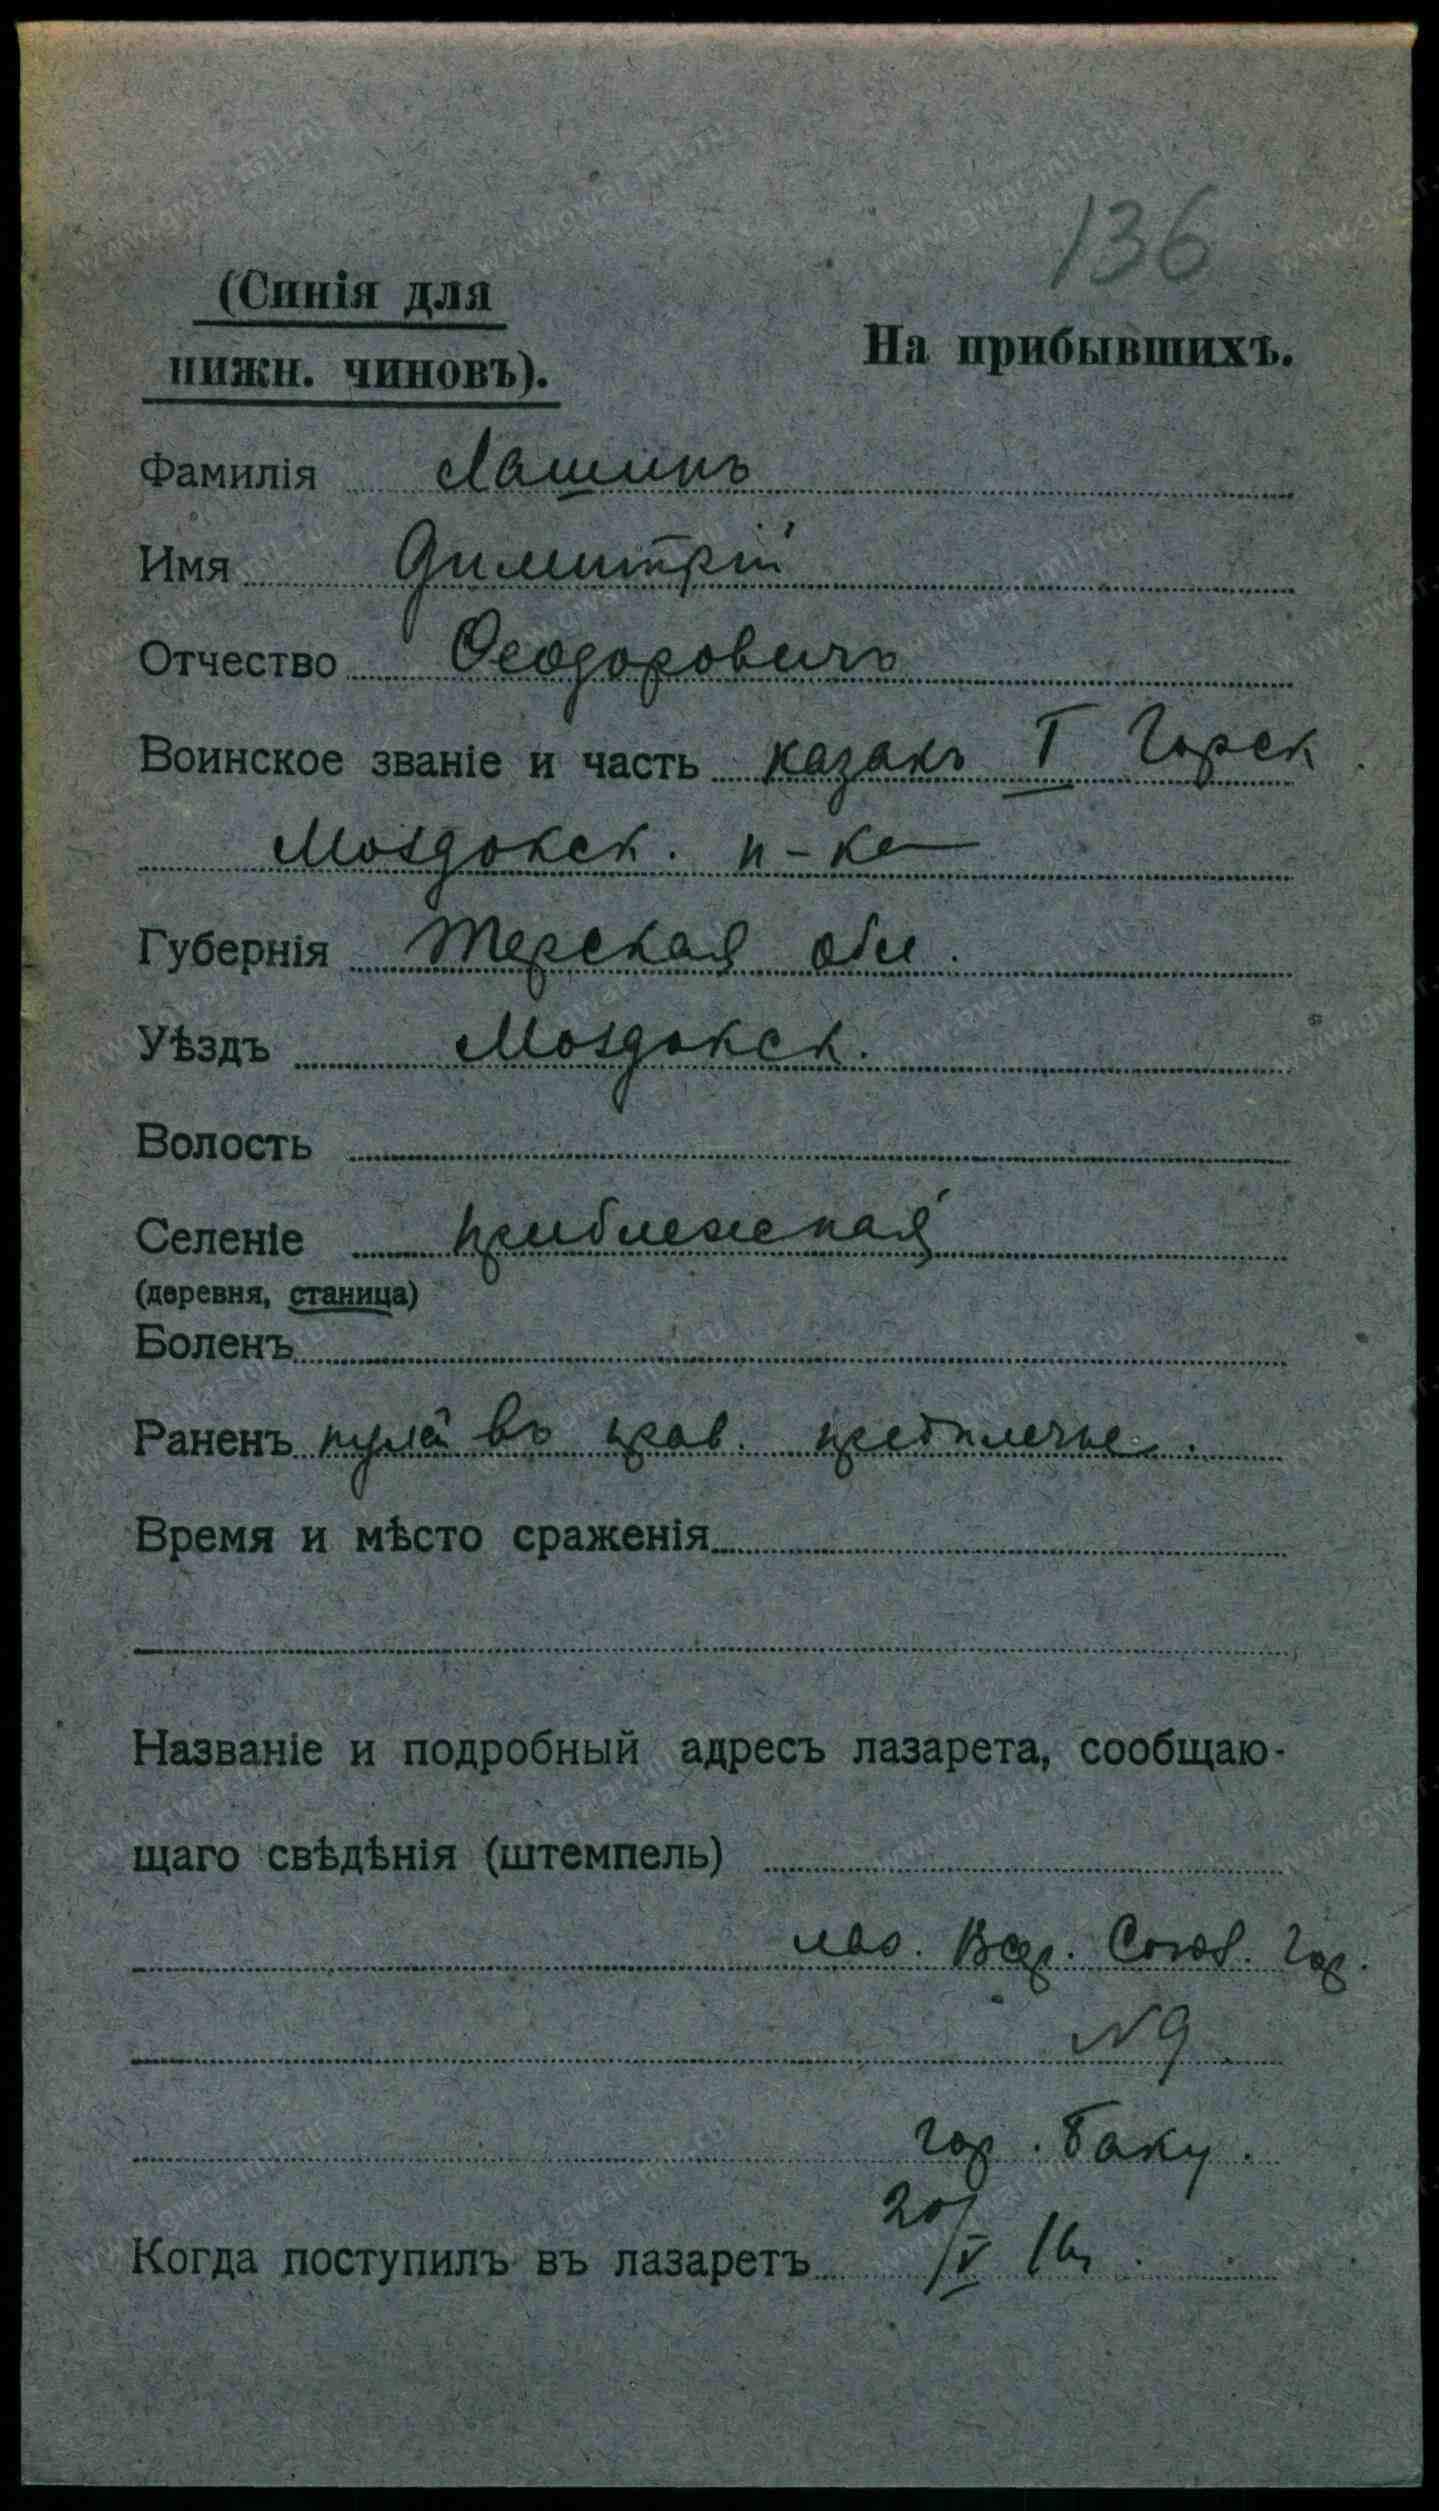 136
(Синія для
нижн. чиновъ).
На прибывшихъ.
Фамилія Лашинъ
Имя Димитрій
Отчество Ѳеодоровичъ
Воинское званіе и часть казакъ I Горск.
Моздокск. п-ка
Губернія Терская обл.
Уѣздъ Моздокск.
Волость
Селеніе Приближная
(деревня, станица)
Боленъ
Раненъ пулей въ прав. предплечье.
Время и мѣсто сраженія
Названіе и подробный адресъ лазарета, сообщаю-
щаго свѣдѣнія (штемпель)
лаз. Всер. Союз. Гор.
N 9
гор. Баку.
Когда поступилъ въ лазаретъ 20/V 16